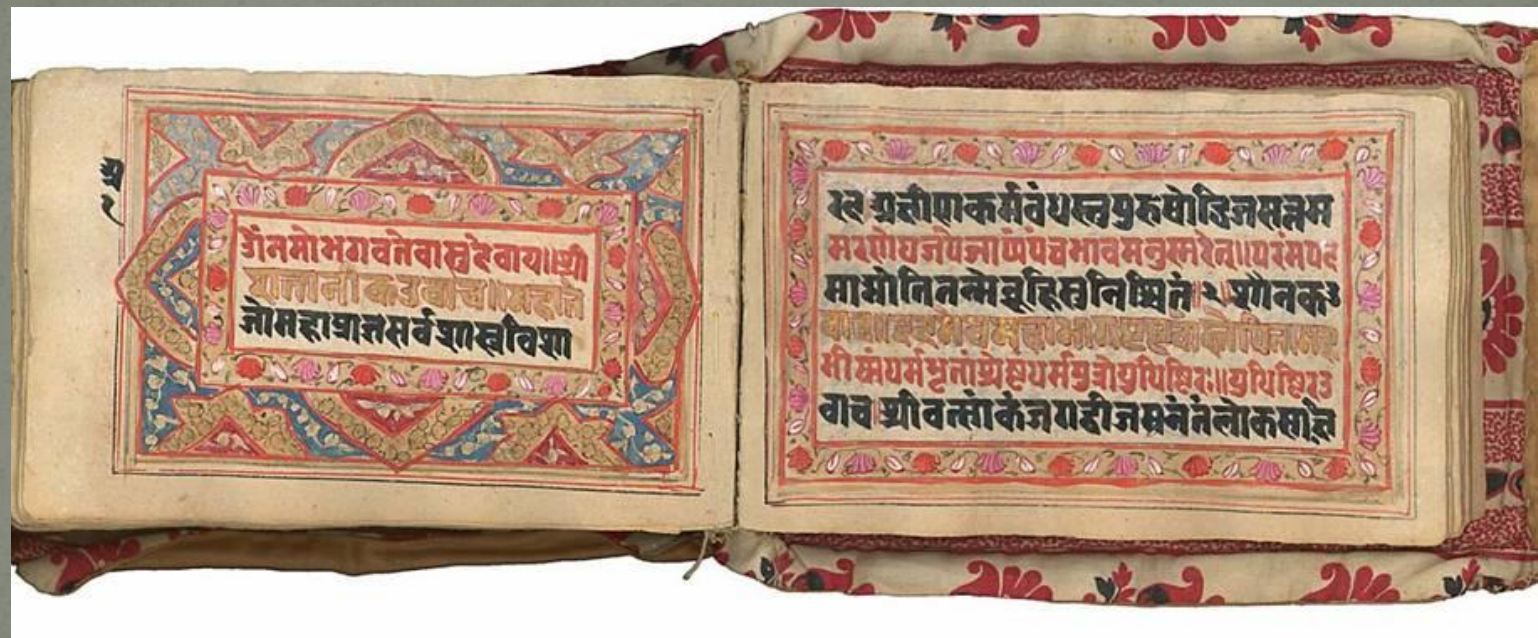 ॐनमोभगवतेवासुदेवाय॥श्री
शतानीकउवाच॥महाते
जोमहाप्राज्ञसर्वशास्त्रविशा
कर्मबंधस्तुपुरुषोद्विजसत्तम
मरणेयजपेजाप्यंयंचभावमनुस्मरेत्॥परमपद
माप्नोतितन्मेब्रूहिसुनिश्चितं २ शौनकउ
वाच॥
भीष्मंधर्मभृतांश्रेष्ठंधर्मपुत्रोयुधिष्ठिरः॥युधिष्ठिरउ
वाच श्रीवत्सांकंजगद्बीजमनंतंलोक